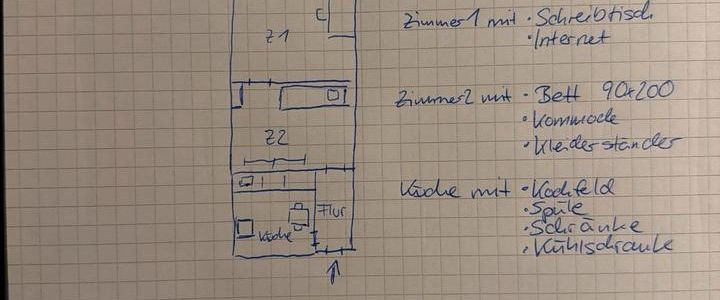 Z1
Zimmer 1 mit · Schreibtisch
· Internet
Zimmer2 mit · Bett 90x200
· Kommode
· Kleiderständer
Z2
Küche mit · Kochfeld
· Spüle
· Schränke
· Kühlschrank
Flur
Küche